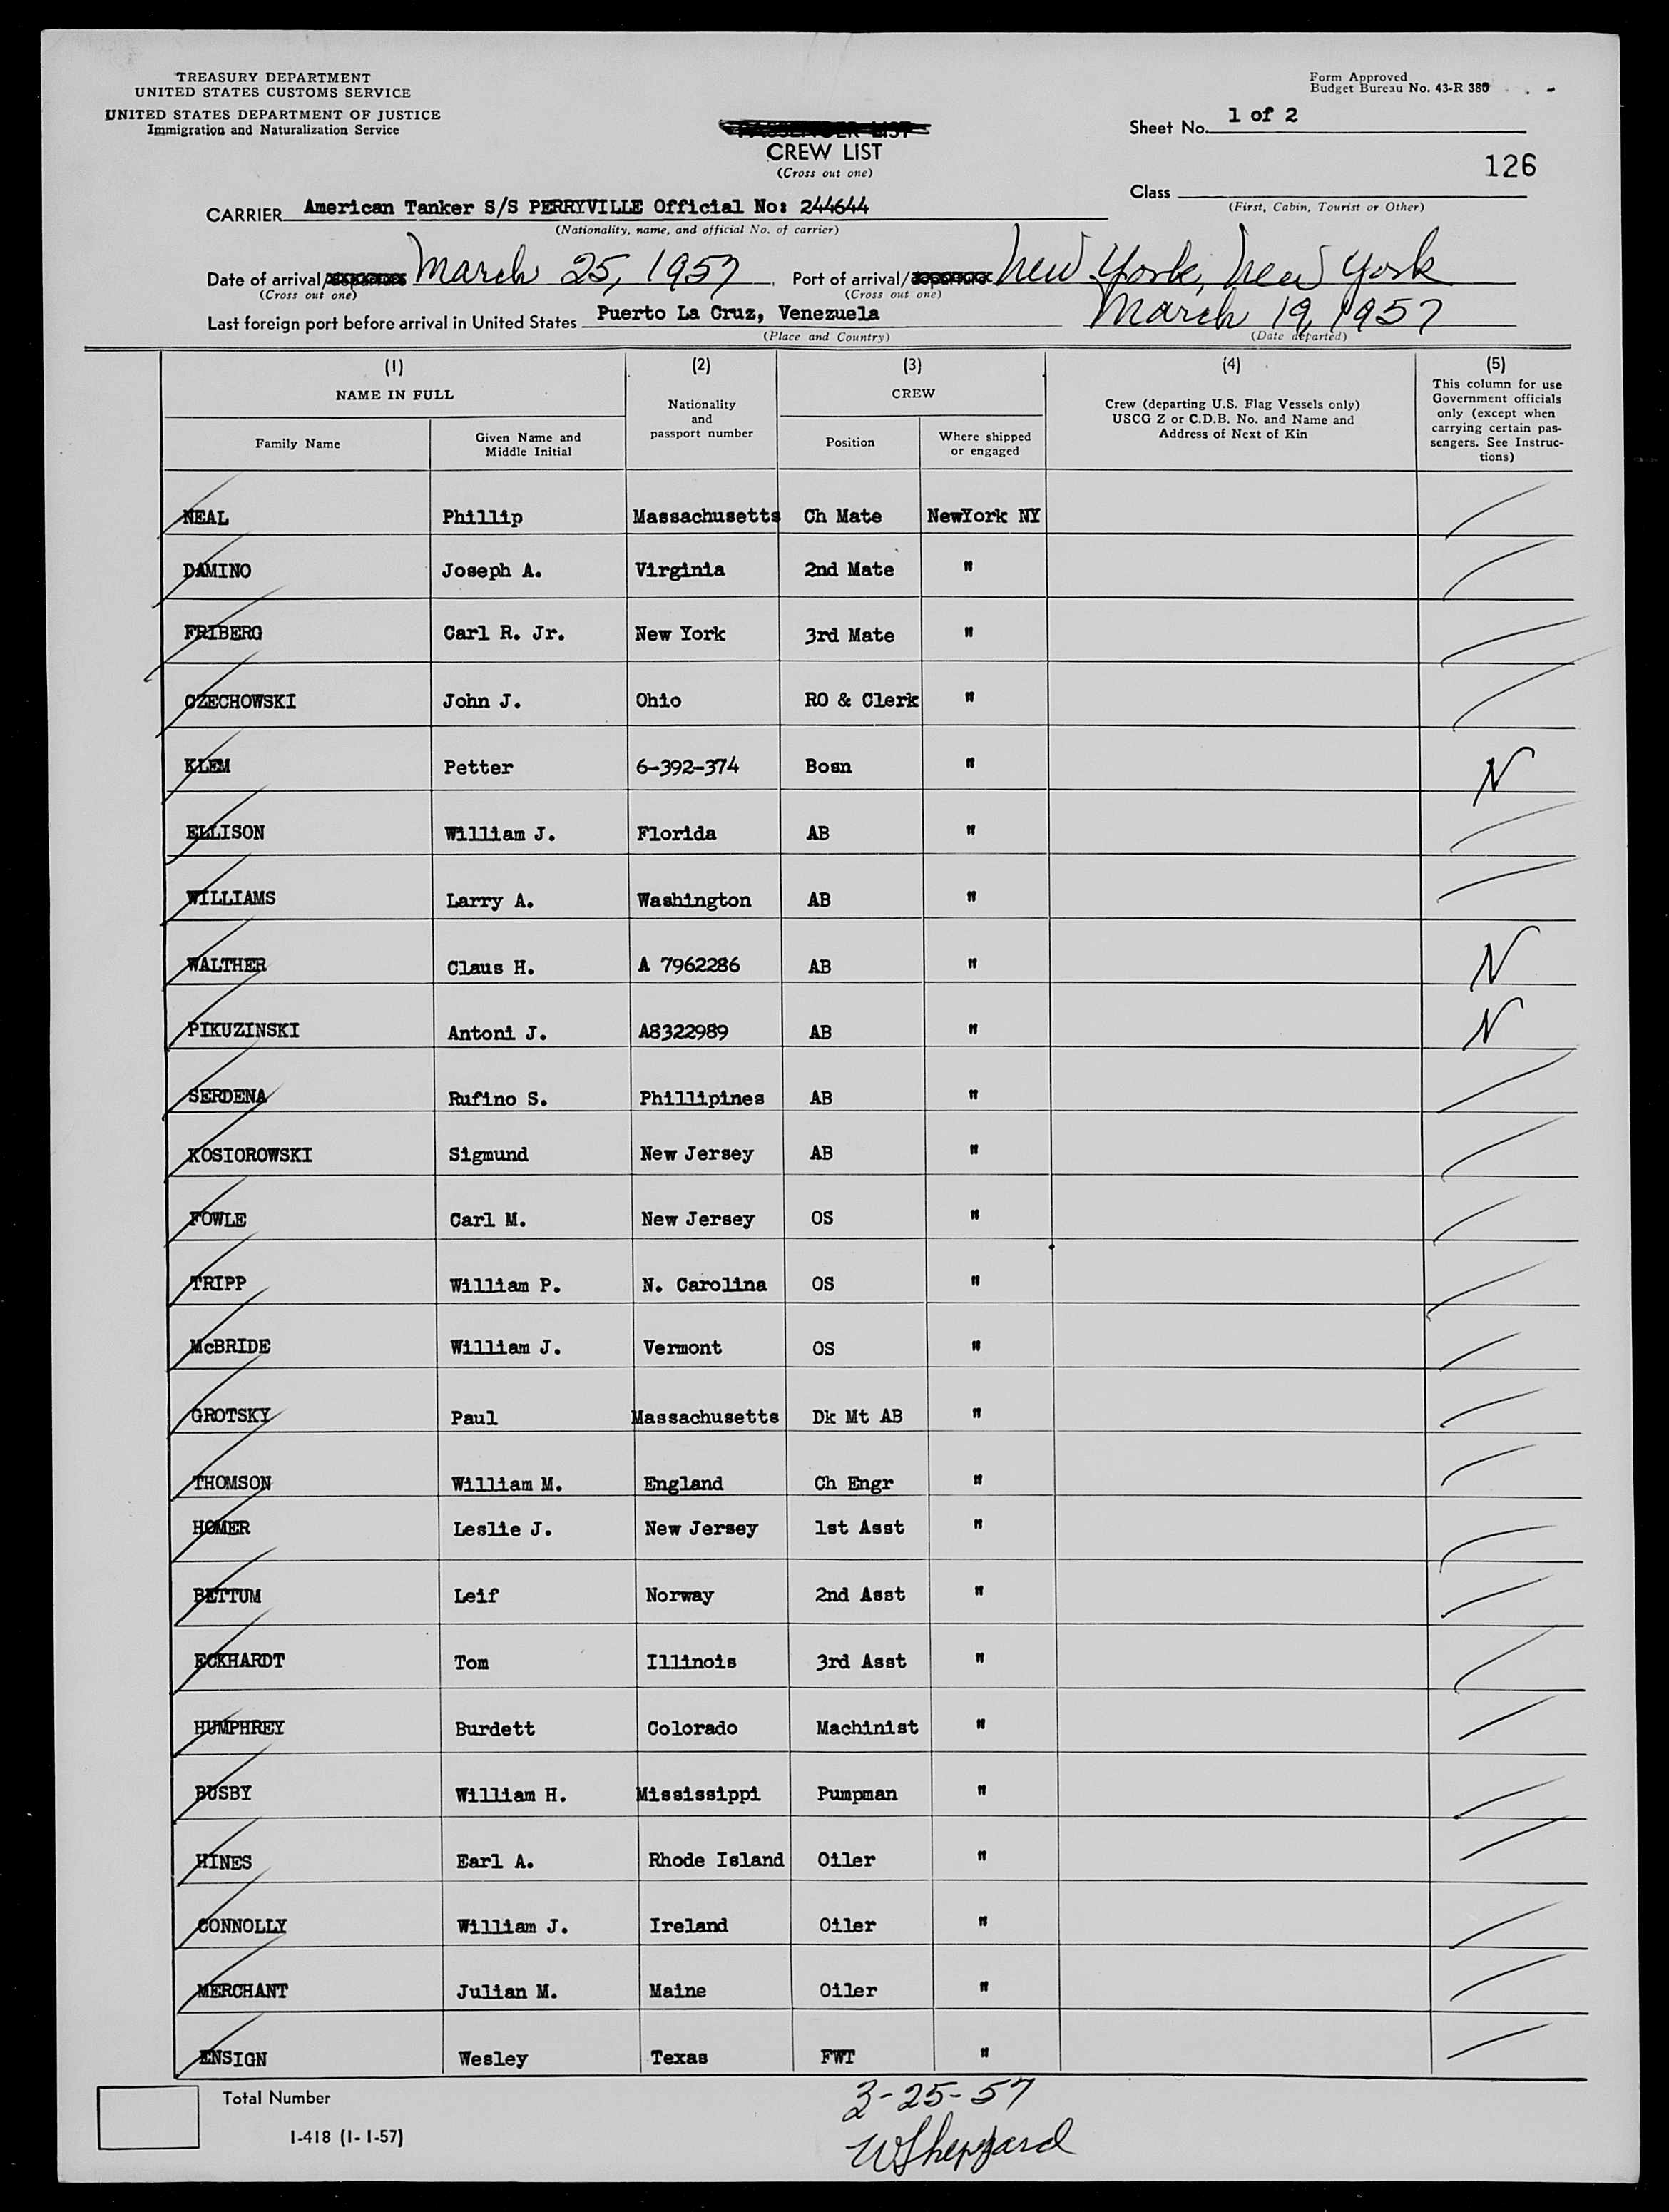 TREASURY DEPARTMENT
UNITED STATES CUSTOMS SERVICE
UNITED STATES DEPARTMENT OF JUSTICE
Immigration and Naturalization Service
Form Approved
Budget Bureau No. 43-R 380
PASSENGER LIST
CREW LIST
(Cross out one)
Sheet No. 1 of 2
126
Class
(First, Cabin, Tourist or Other)
CARRIER American Tanker S/S PERRYVILLE Official No: 244644
(Nationality, name, and official No. of carrier)
Date of arrival/departure March 25, 1957, Port of arrival/departure New York, New York
(Cross out one) (Cross out one)
Last foreign port before arrival in United States Puerto La Cruz, Venezuela March 19, 1957
(Place and Country) (Date departed)
(1) (2) (3) (4) (5)
NAME IN FULL Nationality and passport number CREW Crew (departing U.S. Flag Vessels only) USCG Z or C.D.B. No. and Name and Address of Next of Kin This column for use Government officials only (except when carrying certain passengers. See Instructions)
Family Name Given Name and Middle Initial Position Where shipped or engaged
NEAL Phillip Massachusetts Ch Mate NewYork NY
DAMINO Joseph A. Virginia 2nd Mate "
FRIBERG Carl R. Jr. New York 3rd Mate "
CZECHOWSKI John J. Ohio RO & Clerk "
KLEM Petter 6-392-374 Bosn " N
ELLISON William J. Florida AB "
WILLIAMS Larry A. Washington AB "
WALTHER Claus H. A 7962286 AB " N
PIKUZINSKI Antoni J. A8322989 AB " N
SERDENA Rufino S. Phillipines AB "
KOSIOROWSKI Sigmund New Jersey AB "
FOWLE Carl M. New Jersey OS "
TRIPP William P. N. Carolina OS "
McBRIDE William J. Vermont OS "
GROTSKY Paul Massachusetts Dk Mt AB "
THOMSON William M. England Ch Engr "
HOMER Leslie J. New Jersey 1st Asst "
BETTUM Leif Norway 2nd Asst "
ECKHARDT Tom Illinois 3rd Asst "
HUMPHREY Burdett Colorado Machinist "
BUSBY William H. Mississippi Pumpman "
HINES Earl A. Rhode Island Oiler "
CONNOLLY William J. Ireland Oiler "
MERCHANT Julian M. Maine Oiler "
ENSIGN Wesley Texas FWT "
Total Number
I-418 (1-1-57)
3-25-57
W Sheppard